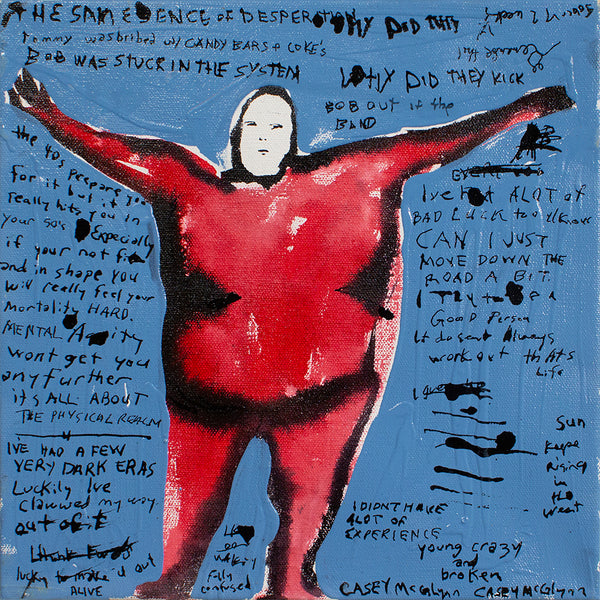 THE SAME DENCE OF DESPERATION
Tommy was bribed w/ CANDY BARS + COKE'S
BOB WAS STUCK IN THE SYSTEM
WHY DID THEY
WHY DID THEY KICK
BOB OUT if the
BAND
the 40s prepare you
for it but if you
really hits you in
your 50's Especially
if your not fit
and in shape you
will really feel your
Mortality HARD.
MENTAL Agility
wont get you
any further
its ALL ABOUT
THE PHYSICAL REALM
IVE HAD A FEW
VERY DARK ERAS
Luckily Ive
clawwed my way
out of it
lucky to make it out
ALIVE
I've Had ALOT of
BAD LUCK too ya know
CAN I JUST
MOVE DOWN THE
ROAD A BIT.
I Try to BE A
GOOD Person
It doesnt Always
work out thats
Life
Sun
keeps
Rising
in the
West
I DIDNT HAVE
ALOT OF
EXPERIENCE
young crazy
and
broken
fully
confused
CASEY McGlynn CASEY McGlynn